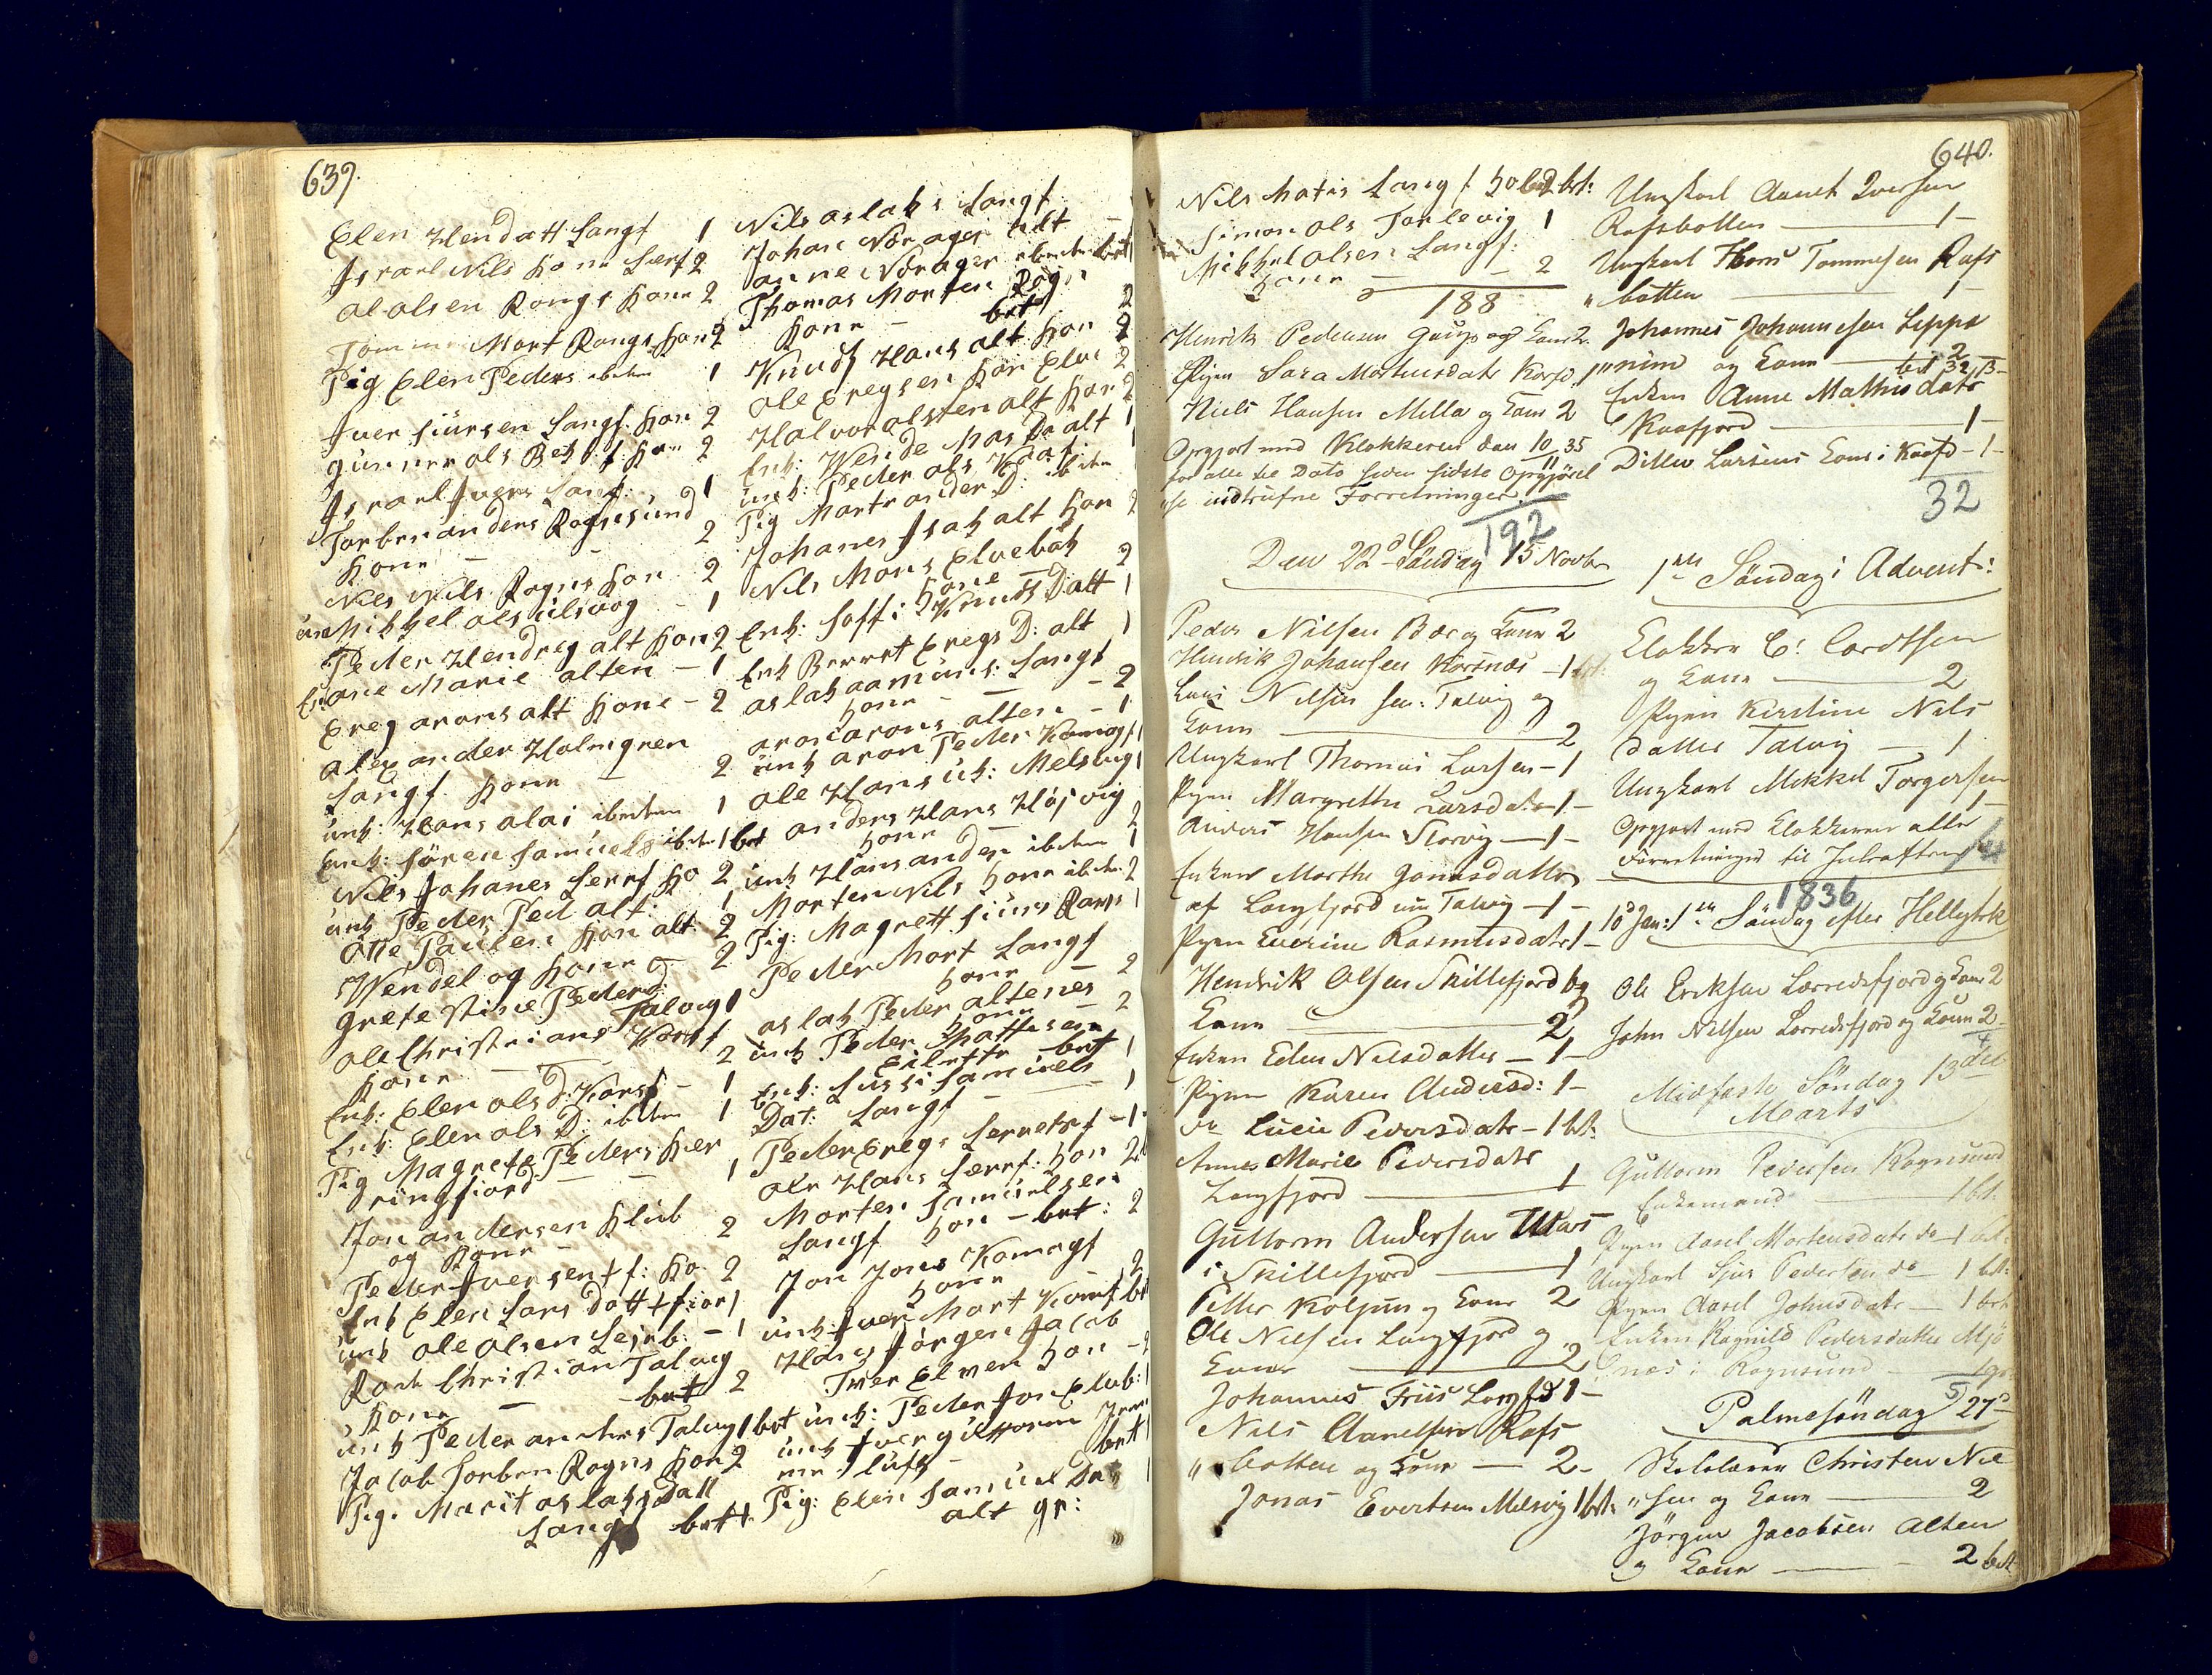 639.
Elen Hendatt Langf 1
Israel Nils Kone Lerf 2
Ol olsen Rongs Konn 2
Tommen Mort Rongs Kon 2
Pig Elen Peders ibiden 1
Iver siúrsen Langf. Kon 2
gunner ols Bek f. Kon 2
Israel Ivers Langf: 1
Torben anders Rognsúnd
Kone 2
Niels Nils Rogns Kon 2
únk Mikkel ols úlsvog - 1
Peder Hendreg alt Kon 2
Enk ane Marie alten - 1
Ereg arons alt Kone - 2
Alexander Holmgren
Langf. Konn 2
únk: Hans alai ibiden 1
Enk: sören Samúels ibiden 1 bet
Nils Johanes Lerrf Ko 2
únk Peder Ped alt. 1
Otte Paúlen Kon alt 2
Wendel og Konn 2
Grete stine Pederd:
Talvig 1
Ole Christians Korsf
Konn 2
Enk: Elen ols D: Korsf - 1
Enk: Elen ols D: ibiden 1
Pig Magrete Peders Kier
ringfiord - - 1
Jon andersen Klúb
og Kone - 2
Peder Iversen f: Ko 2
Enk Elen Lars datt fior 1
únk Ole olsen Lejrb: - 1
Rock Christian Talvig
Kone - bet 2
únk Peder anders Talvig 1 bet
Jacob Torben Rogns Kon 2
Pig. Marit aslaks Datt
Langf bet 1
Nils aslaks Langf
Johan Norager alt -
anne Norager ibiden bet
Thomas Morten Rogn
Konn - bet 2
Knúdt Hans alt Kon 2
Ole Eregsen Kon Elve 2
Halvor olsten alt Kon 2
Enk: Wende Mos Da alt 1
únk: Peder ols Kaaf: 1
Pig Martr ander D: ibiden
Johanes Isak alt Kon 2
Nils Mons Elvebak
Kone - 2
Enk: Soffi Knúds Datt 1
Enk Berret Eregs D: alt 1
aslak aamúns: Langf
Konn - - 2
aron arons alten - 1
únk aron Peder Komagf 1
Ole Hans úk: Melsvig 1
anders Hans Höjvig
Konn 2
únk Hans anders ibiden 1
Morten Nils Konn ibiden 2
Pig: Magrett siúrs Rafs 1
Peder Mort Langf
Konn 2
aslak Peder altenes
Konn 2
únk Peder Matthisen
Eilertr bet 1
Enk: Súsi Samúels
Dat: Langf - 1
Peder Eregs Lerretsf - 1
Ole Hans Lerrf: Kon 2
Morten Samúelsen
Langf Kon - bet: 2
Jon Jons Komagf
Konn 2
únk Iver Mort Komf bt
Hans Jörgen Jacob
Tver Elven Kon - 2
únk: Peder Jon Elvb: 1
únk Iver gúttorm
bet
Pig: Elen Samúel Da
alt gr:
640.
Nils Matis Langf Ko 2 bt:
Simon Ols Torlevig 1
Mikkel Olsen Langf:
Konn - - 2
188
Henrik Pedersen Gaup og Kone 2.
Pigen Sara Mortensdatr Korsfd. 1
Niels Hansen Mella og Kone 2
Opgjort med Klokkeren den 10/11 35
for alle til Dato siden sidste Opgjörel
"se indtrufne Forretninger
192
Den 22d Söndag 15 Novbr
Peder Nilsen Bær og Kone 2
Hendrik Johansen Korsnæs - 1 bt:
Lars Nilsen sen: Talvig og
Kone 2
Ungkarl Thomas Larsen - 1
Pigen Margrethe Larsdatr - 1 -
Anders Hansen Storvig - 1 -
Enken Marthe Jonasdatter
af Langfjord nu Talvig - 1 -
Pigen Everine Rasmusdatr 1 -
Hendrik Olsen Skillefjord og
Kone 2
Enken Elen Nilsdatter - 1 -
Pigen Karen Andersd: 1 -
do Lucie Pedersdatr - 1 bt:
Anne Marie Pedersdatr
Langfjord 1
Guttorm Andersen
i Skillefjord 1
Petter Kolpus og Kone 2
Ole Nilsen Langfjord og
Kone 2
Johannes Friis Langfd 1 -
Nils Amelsen Rafs
" botten og Kone - 2 -
Jonas Evertsen Melsvig 1 bt:
Ungkarl Anet Iversen
Rafsbotten 1 -
Ungkarl Hans Tommesen Rafs
" botten 1 -
Johannes Johannesen Leppe
" nim og Kone 2
bet 32 ß -
Enken Anne Mathisdatr
Kaafjord 1 -
Ditlev Larsens Kone i Kaafd - 1 -
32
1ste Söndag i Advent:
Klokker C: Cordtsen
og Kone 2
Pigen Kirstine Nils
datter Talvig - 1
Ungkarl Mikkel Torgersen
1 -
Opgjort med Klokkeren alle
Forretninger til Juleaften
1836
10d Jan: 1ste Söndag efter Helligtrk
Ole Eriksen Lerredsfjord og Kone 2
John Nilsen Lerredsfjord og Kone 2
4
Midfaste Söndag 13de
Marts
Guttorm Pedersen Rognsund
Enkemand 1 bt.
Pigen Aasel Mortensdatr do 1 bt.
Ungkarl Sjur Pedersen do - 1 bt:
Pigen Aasel Johnsdatr - 1 bt
Enken Ragnild Pedersdatter Mjö
snæs i Rognsund - 1 gr
5
Palmesöndag 27de
Skolelærer Christen Niel
" sen og Kone 2
Jörgen Jacobsen Alten
og Kone - 2 bet